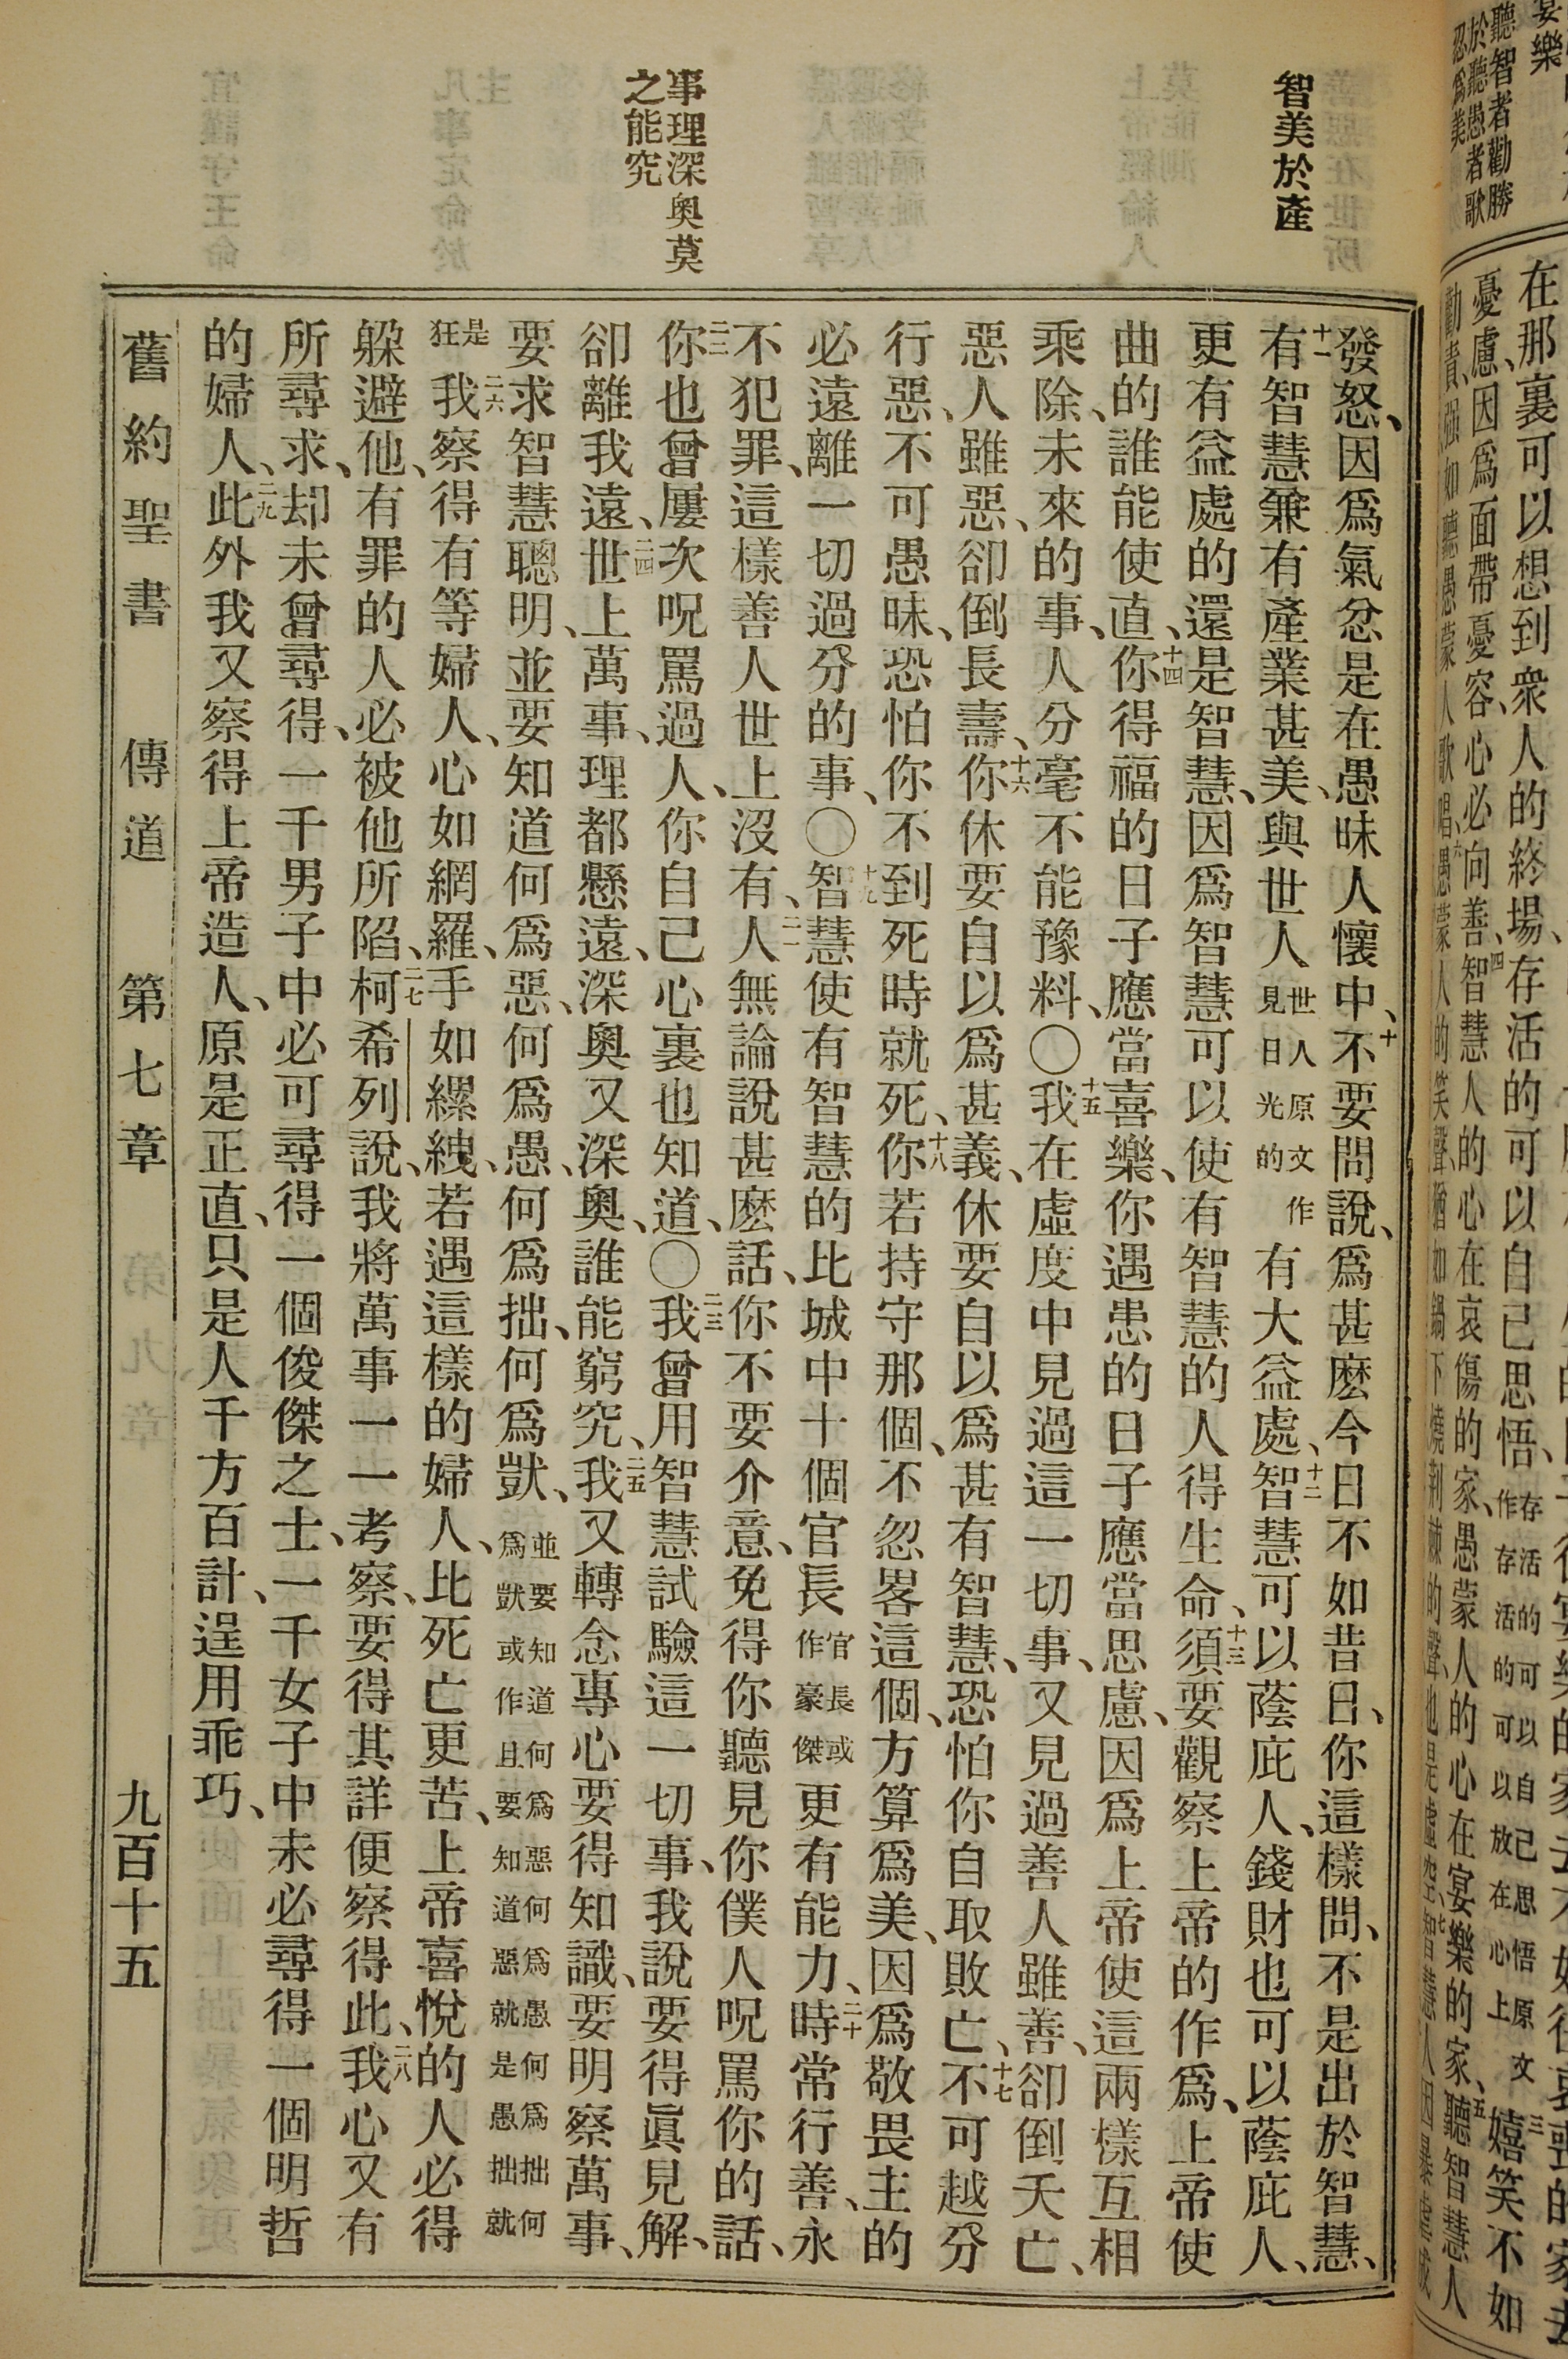 智美於產
事理深奧莫
之能究
發怒、因爲氣忿是在愚昧人懷中、十不要問說、爲甚麽今日不如昔日、你這樣問、不是出於智慧、
十一有智慧兼有產業甚美、與世人世人原文作見日光的有大益處、十二智慧可以蔭庇人、錢財也可以蔭庇人、
更有益處的還是智慧、因爲智慧可以使有智慧的人得生命、十三須要觀察上帝的作爲、上帝使
曲的誰能使直、十四你得福的日子應當喜樂、你遇患的日子應當思慮、因爲上帝使這兩樣互相
乘除、未來的事、人分毫不能豫料、〇十五我在虛度中見過這一切事、又見過善人雖善、卻倒夭亡、
惡人雖惡、卻倒長壽、十六你休要自以爲甚義、休要自以爲甚有智慧、恐怕你自取敗亡、十七不可越分
行惡、不可愚昧、恐怕你不到死時就死、十八你若持守那個、不忽畧這個、方算爲美、因爲敬畏主的
必遠離一切過分的事、〇十九智慧使有智慧的比城中十個官長官長或作豪傑更有能力、二十時常行善、永
不犯罪、這樣善人世上沒有、二一人無論說甚麽話、你不要介意、免得你聽見你僕人呪罵你的話、
二二你也曾屢次呪罵過人、你自己心裏也知道、〇二三我曾用智慧試驗這一切事、我說要得眞見解、
卻離我遠、二四世上萬事、理都懸遠、深奧又深奧、誰能窮究、二五我又轉念專心要得知識、要明察萬事、
要求智慧聰明、並要知道何爲惡、何爲愚、何爲拙、何爲獃、並要知道何爲惡何爲愚何爲拙何爲獃或作且要知道惡就是愚拙就
是狂二六我察得有等婦人、心如網羅、手如縲絏、若遇這樣的婦人、比死亡更苦、上帝喜悅的人必得
躱避他、有罪的人必被他所陷、二七柯希列說、我將萬事一一考察、要得其詳便察得此、二八我心又有
所尋求、却未曾尋得、一千男子中必可尋得一個俊傑之士、一千女子中未必尋得一個明哲
的婦人、二九此外我又察得上帝造人、原是正直、只是人千方百計、逞用乖巧、
舊約聖書　傳道　第七章　九百十五